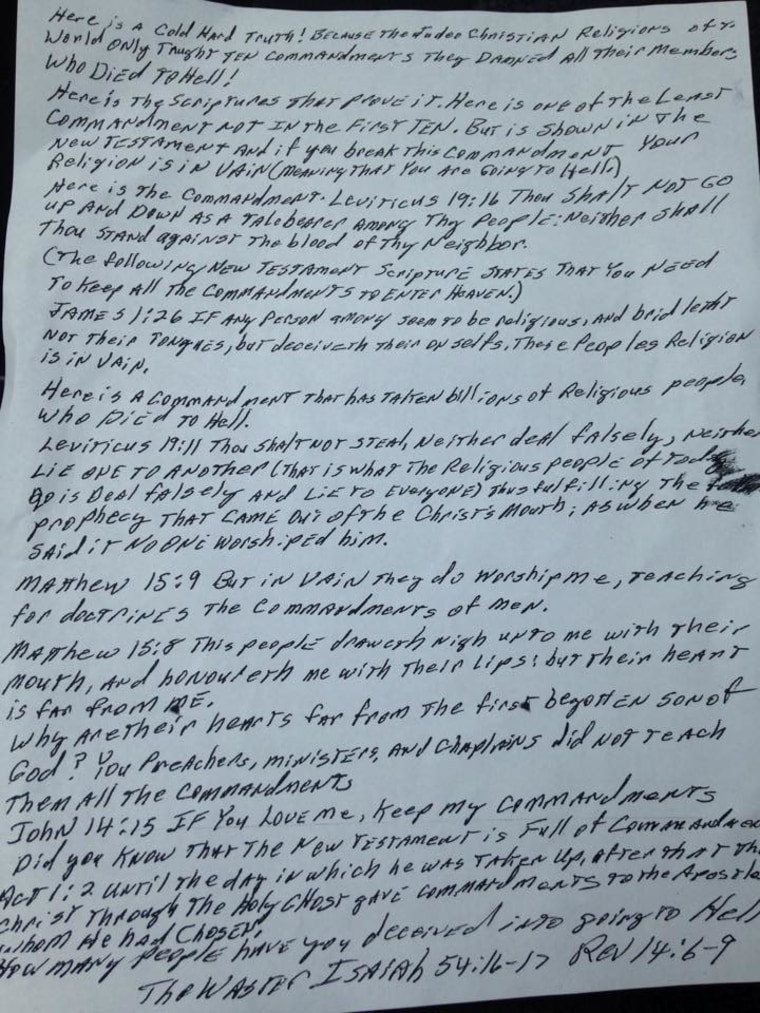 Here is a Cold Hard Truth! Because the Judeo Christian Religions of
World Only Taught TEN Commandments They Damned All Their Members
Who Died To Hell!
Here is The Scriptures That prove it. Here is one of The Least
Commandment not In the First TEN. But is shown in The
New Testament And if you break This Commandment Your
Religion is in VAIN (Meaning That You Are Going to Hell.)
Here is The Commandment. Leviticus 19:16 Thou Shalt NOT GO
up And Down As A Talebearer Among Thy People: Neither Shall
Thou STAND against The blood of Thy Neighbor.
(The following New Testament Scripture States That You Need
To Keep All The Commandments To Enter Heaven.)
James 1:26 If Any Person among seem to be religious, And bridleth
Not Their Tongues, but deceiveth Their on selfs, These Peoples Religion
is in VAIN.
Here is A Commandment That has Taken billions of Religious people
Who Died To Hell.
Leviticus 19:11 Thou Shalt not Steal, Neither deal falsely, Neither
Lie one To Another (That is what The Religious people of Today
Do is Deal falsely And Lie To Everyone) Thus fulfilling The
prophecy That Came Out of the Christ's Mouth; As when he
Said it No One Worshiped him.
Matthew 15:9 But in Vain They do worship me, Teaching
for doctrines The Commandments of men.
Matthew 15:8 This people draweth nigh unto me with Their
mouth, And honoureth me with Their Lips; but Their heart
is far from ME.
Why Are their hearts far from The first begotten Son of
God? You Preachers, ministers, And Chaplains did not Teach
Them All The Commandments
John 14:15 If You Love me, Keep my Commandments
Did you Know That The New Testament is Full of
Act 1:2 Until The day in which he was Taken Up, After that The
Christ Through The Holy Ghost gave Commandments To The Apostle
whom He had Chosen.
How many people have you deceived into going to Hell
The Waster Isaiah 54:16-17 Rev 14:6-9